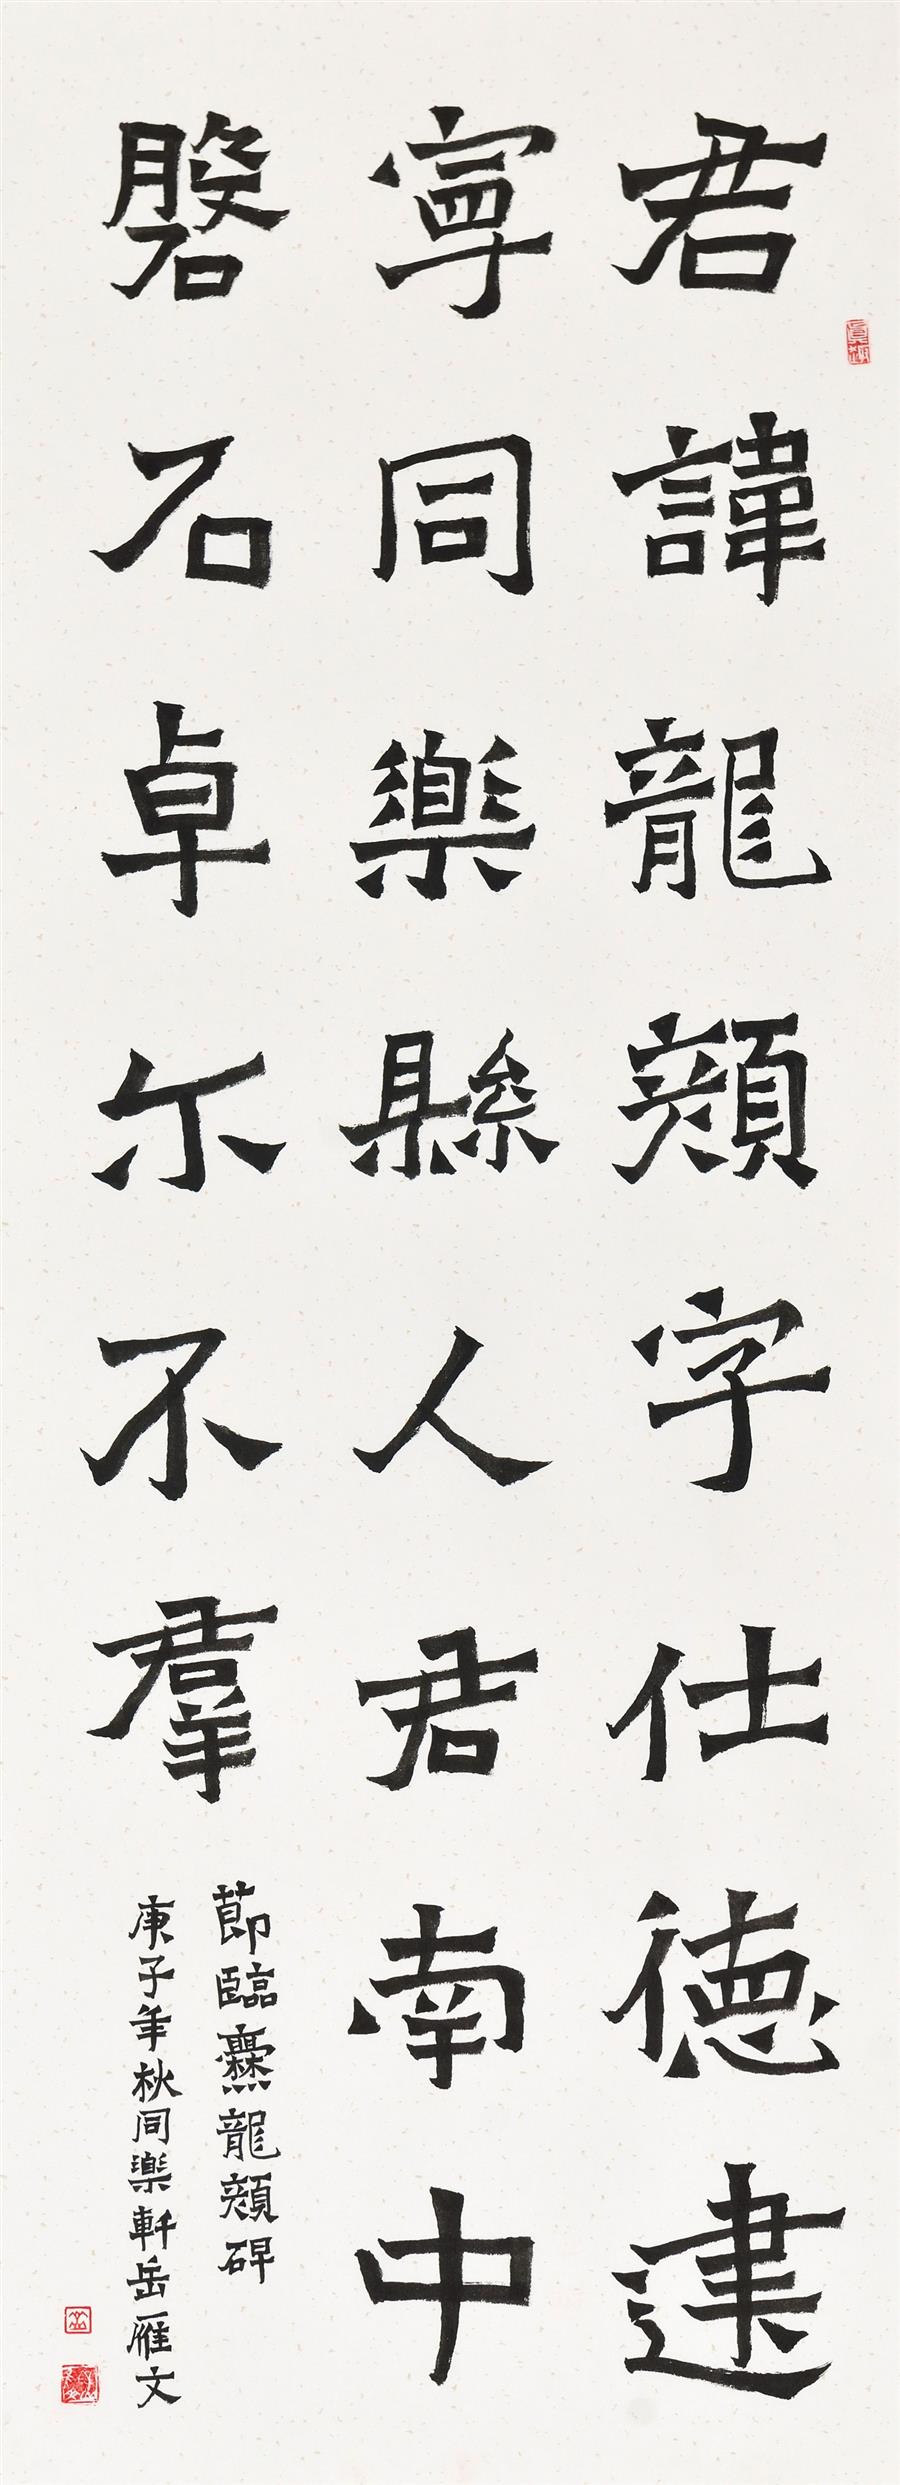 君諱龍顔字仕德建
寧同樂縣人君南中
磐石卓尓不羣
節臨爨龍顔碑
庚子年秋同樂軒岳雁文